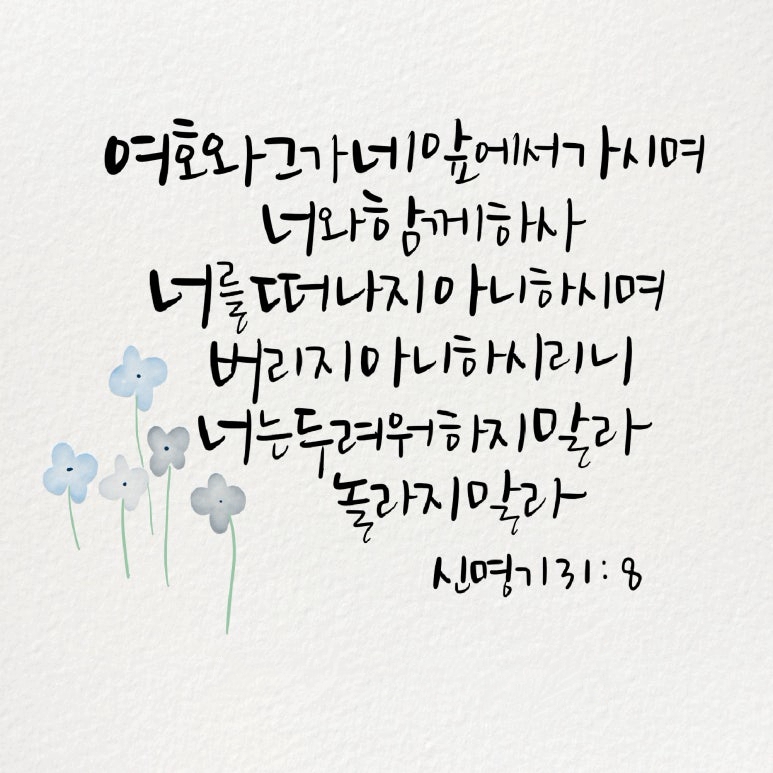 여호와 그가 네 앞에서 가시며
너와 함께 하사
너를 떠나지 아니하시며
버리지 아니하시리니
너는 두려워하지 말라
놀라지 말라
신명기 31:8